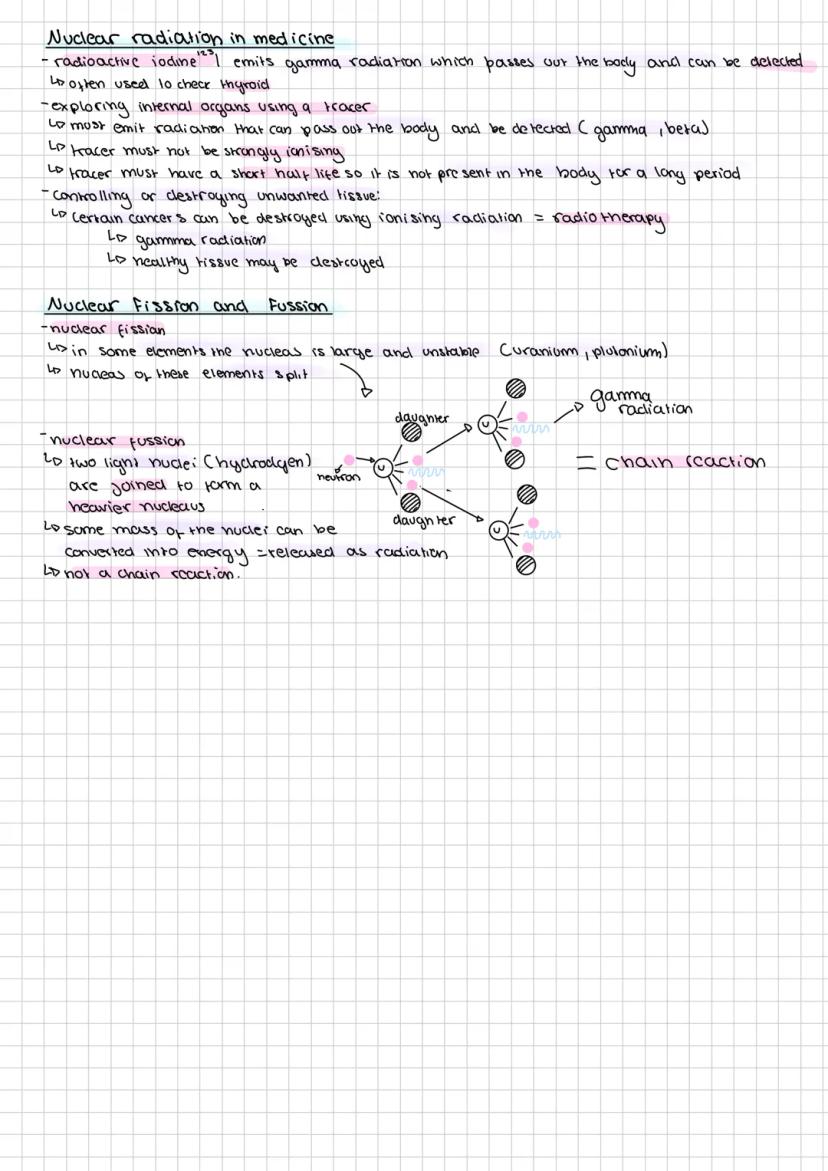 Nuclear radiation in medicine
- radioactive iodine ¹²³I emits gamma radiation which passes out the body and can be detected
↳ often used to check thyroid
- exploring internal organs using a tracer
↳ must emit radiation that can pass out the body and be detected (gamma, beta)
↳ tracer must not be strongly ionising
↳ tracer must have a short half life so it is not present in the body for a long period
- controlling or destroying unwanted tissue:
↳ certain cancers can be destroyed using ionising radiation = radiotherapy
↳ gammma radiation
↳ healthy tissue may be destroyed
Nuclear Fission and Fussion
- nuclear fission
↳ in some elements the nucleas is large and unstable (uranium, plutonium)
↳ nucleas of these elements split
gamma
radiation
daughter
U
U
neutron
daughter
U
= chain reaction
- nuclear fussion
↳ two light nuclei (hydrodgen)
are joined to form a
heavier nucleaus
↳ some mass of the nuclei can be
converted into energy = released as radiation
↳ not a chain reaction.